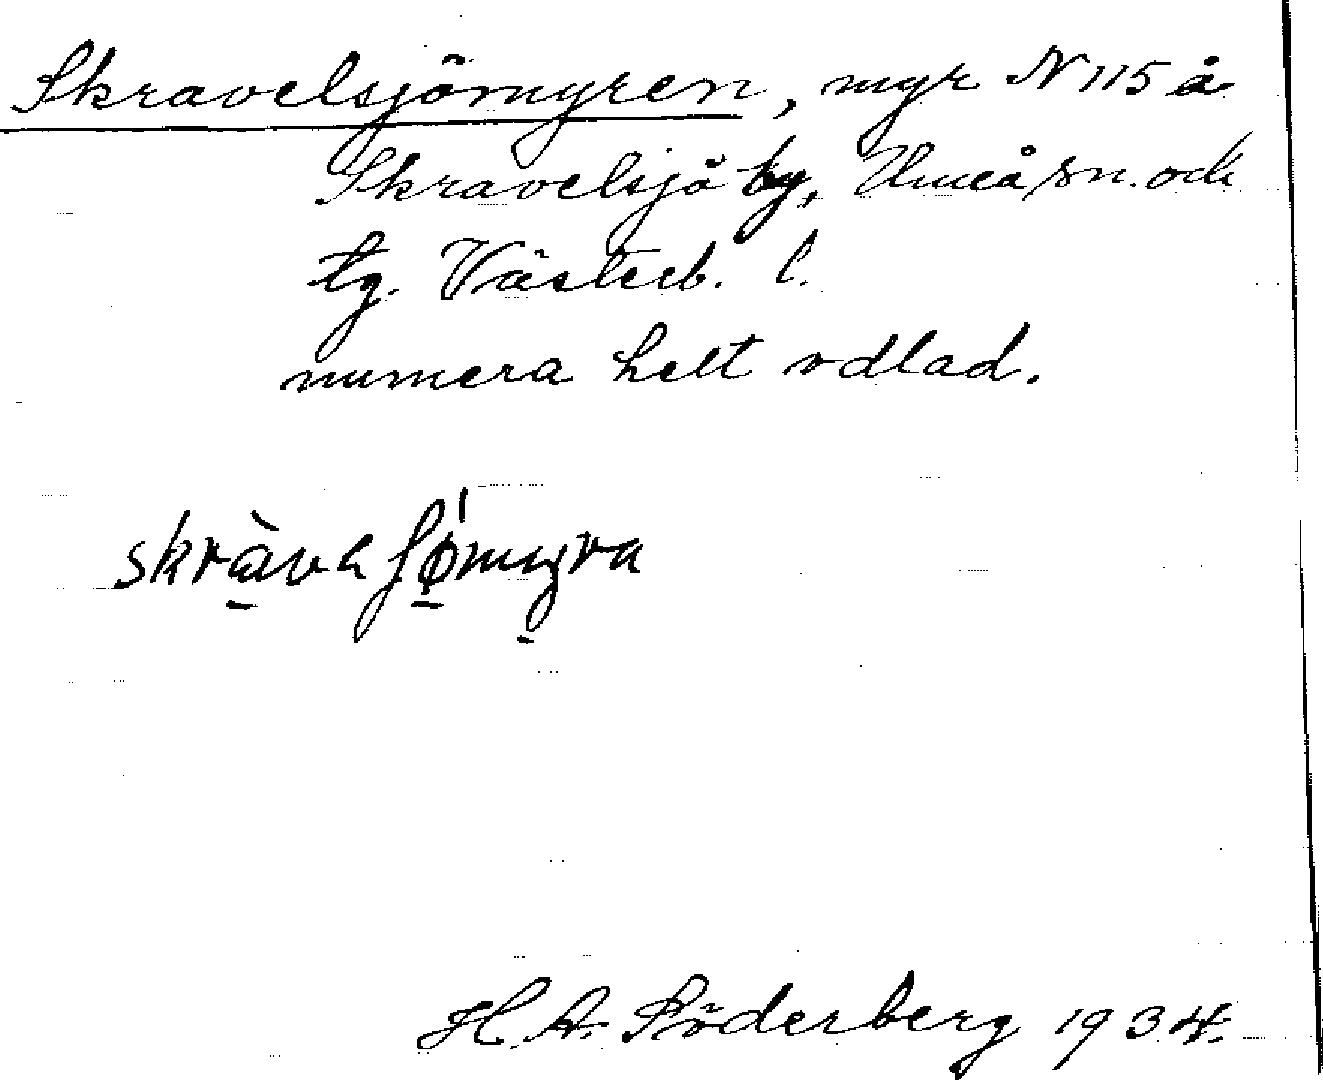 Skravelsjömyren, myr N 115 å
Skravelsjö by, Umeå sn. och
tg. Västerb. l.
numera helt odlad.
H. A. Söderberg 1934.